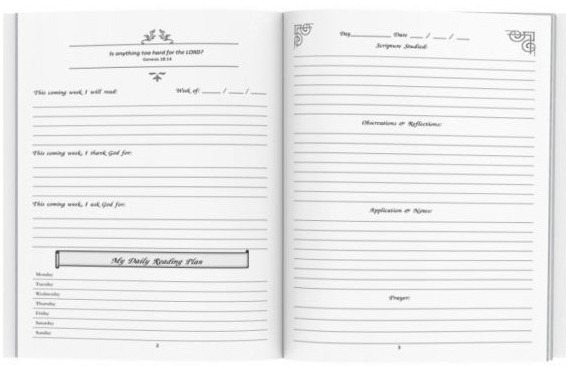 Is anything too hard for the LORD?
Genesis 18:14
This coming week, I will read:
Week of: ____ / ___ / ___
This coming week, I thank God for:
This coming week, I ask God for:
My Daily Reading Plan
Monday
Tuesday
Wednesday
Thursday
Friday
Saturday
Sunday
2
Day__________ Date ___ / ___ / ___
Scripture Studied:
Observations & Reflections:
Application & Notes:
Prayer:
3